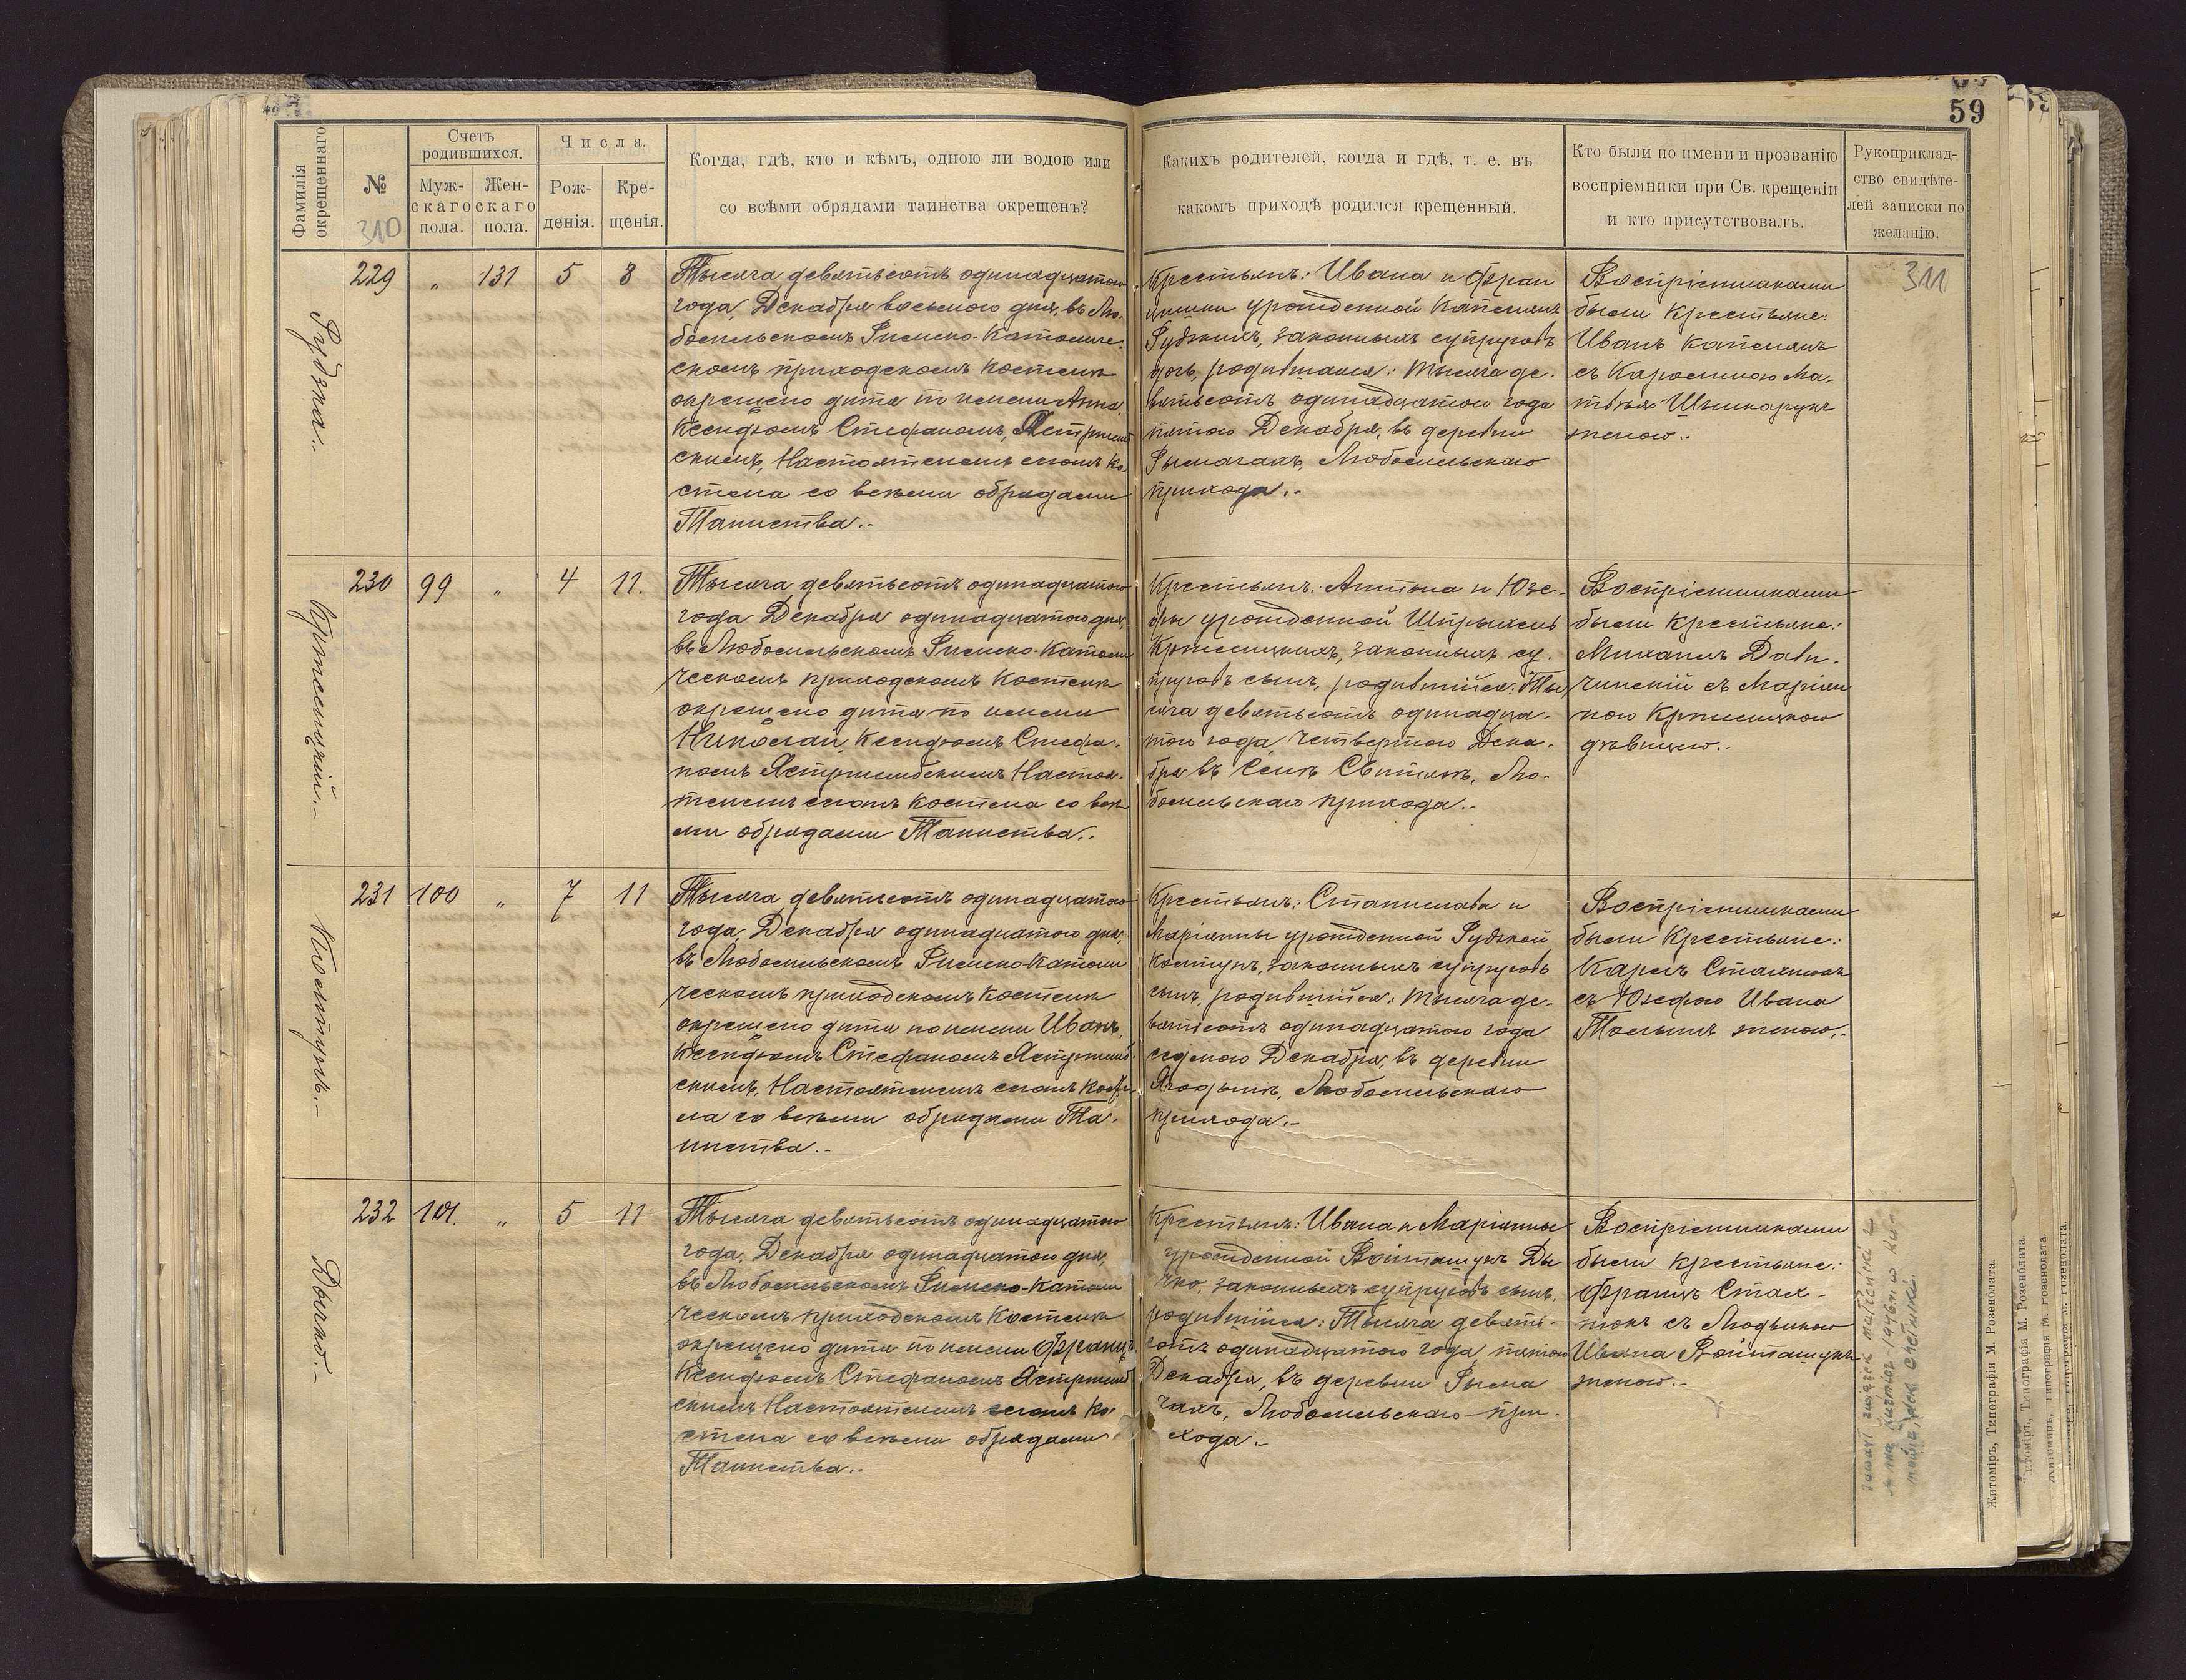 59
Фамилія окрещеннаго
№
310
Счетъ родившихся.
Мужскаго пола.
Женскаго пола.
Числа.
Рожденія.
Крещенія.
Когда, гдѣ, кто и кѣмъ, одною ли водою или
со всѣми обрядами таинства окрещенъ?
Какихъ родителей, когда и гдѣ, т. е. въ
какомъ приходѣ родился крещенный.
Кто были по имени и прозванію
воспріемники при Св. крещеніи
и кто присутствовалъ.
Рукоприклад-
ство свидѣте-
лей записки по
желанію.
311
Рудзка.
229 „ 131 5 8
Тысяча девятьсотъ одинадцатого
года, Декабря восьмого дня, въ Лю-
бомльскомъ Римско-Католиче-
скомъ приходскомъ костелѣ
окрещено дитя по имени Анна,
Ксендзомъ Стефаномъ Ястржемб
скимъ, Настоятелемъ сего ко
стела со всѣми обрядами
Таинства.-
Крестьянъ: Ивана и Фран
цишки урожденной
Рудзкихъ, законныхъ супруговъ
дочь, родившаяся: тысяча де-
вятьсотъ одинадцатого года
пятого Декабря, въ деревни
Рымачахъ, Любомльскаго
прихода.-
Воспріемниками
были крестьяне:
Иванъ
съ Каролиною Ма-
твѣя
женою.-
230 99 „ 4 11.
Тысяча девятьсотъ одинадцатого
года Декабря одинадцатого дня,
въ Любомльскомъ Римско-Католи
ческомъ приходскомъ костелѣ
окрещено дитя по имени
Николай, Ксендзомъ Стефа-
номъ Ястржембскимъ Настоя-
телемъ сего костела со всѣ
ми обрядами Таинства.-
Крестьянъ: Антона и Юзе-
фы урожденной
законныхъ су-
пруговъ сынъ, родившійся: Ты
сяча девятьсотъ одинадца-
того года, четвертого Дека-
бря въ селѣ Свитязѣ, Лю-
бомльскаго прихода.-
Воспріемниками
были крестьяне:
Михаилъ Дави-
чинскій съ Маріан
ною
дѣвицею.-
Костунъ.-
231 100 „ 7 11
Тысяча девятьсотъ одинадцатого
года Декабря одинадцатого дня,
въ Любомльскомъ Римско-Католи
ческомъ приходскомъ костелѣ
окрещено дитя по имени Иванъ,
Ксендзомъ Стефаномъ Ястржемб-
скимъ, Настоятелемъ сего косте
ла со всѣми обрядами Та-
инства.-
Крестьянъ: Станислава и
Маріанны урожденной Рудзкой
Костунъ, законныхъ супруговъ
сынъ, родившійся: тысяча де-
вятьсотъ одинадцатого года
седьмого Декабря, въ деревни
Ягодзинѣ, Любомльскаго
прихода.-
Воспріемниками
были крестьяне:
Карлъ
съ Юзефою Ивана
женою.-
Дычко.-
232 101. „ 5 11
Тысяча девятьсотъ одинадцатого
года, Декабря одинадцатого дня,
въ Любомльскомъ Римско-Католи
ческомъ приходскомъ костелѣ
окрещено дитя по имени Францъ
Ксендзомъ Стефаномъ Ястржемб
скимъ Настоятелемъ сего ко-
стела со всѣми обрядами
Таинства.-
Крестьянъ: Ивана и Маріанны
урожденной Войташукъ Ды
чко, законныхъ супруговъ сынъ,
родившійся: Тысяча девять-
сотъ одинадцатого года пятого
Декабря, въ деревни Рыма
чахъ, Любомльскаго при-
хода.-
Воспріемниками
были крестьяне:
Францъ
съ Людвикою
Ивана Войташукъ
женою.-
Житоміръ, Типографія М. Розенблата.